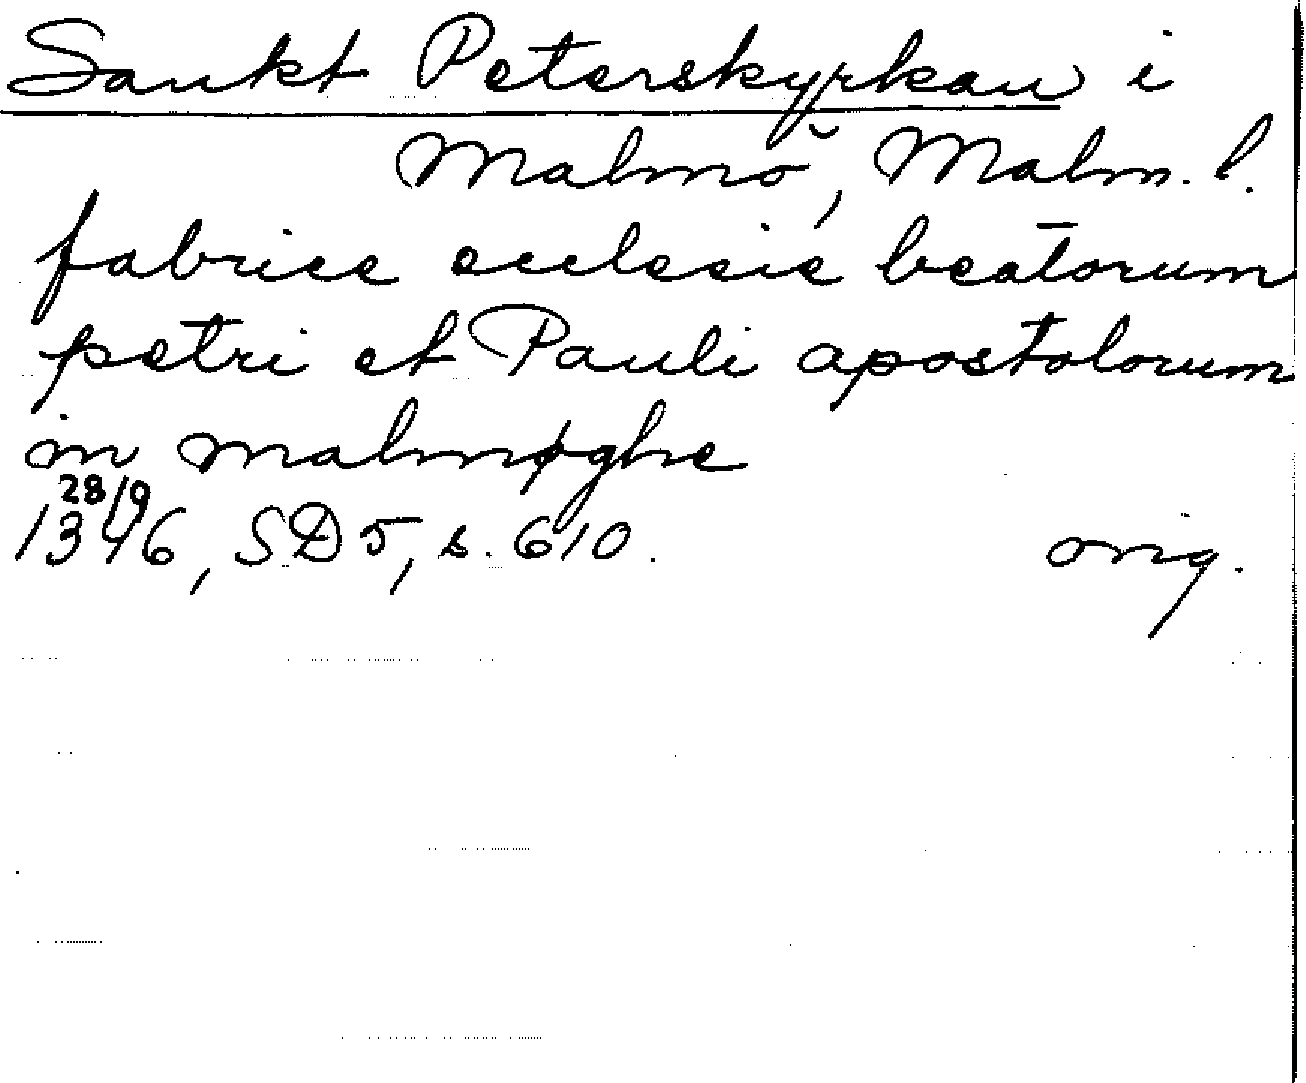 Sankt Peterskyrkan i
Malmö, Malm. l.
fabrice ecclesie beatorum
petri et Pauli apostolorum
in malmøghe
28/9
1346, SD 5, s. 610. orig.